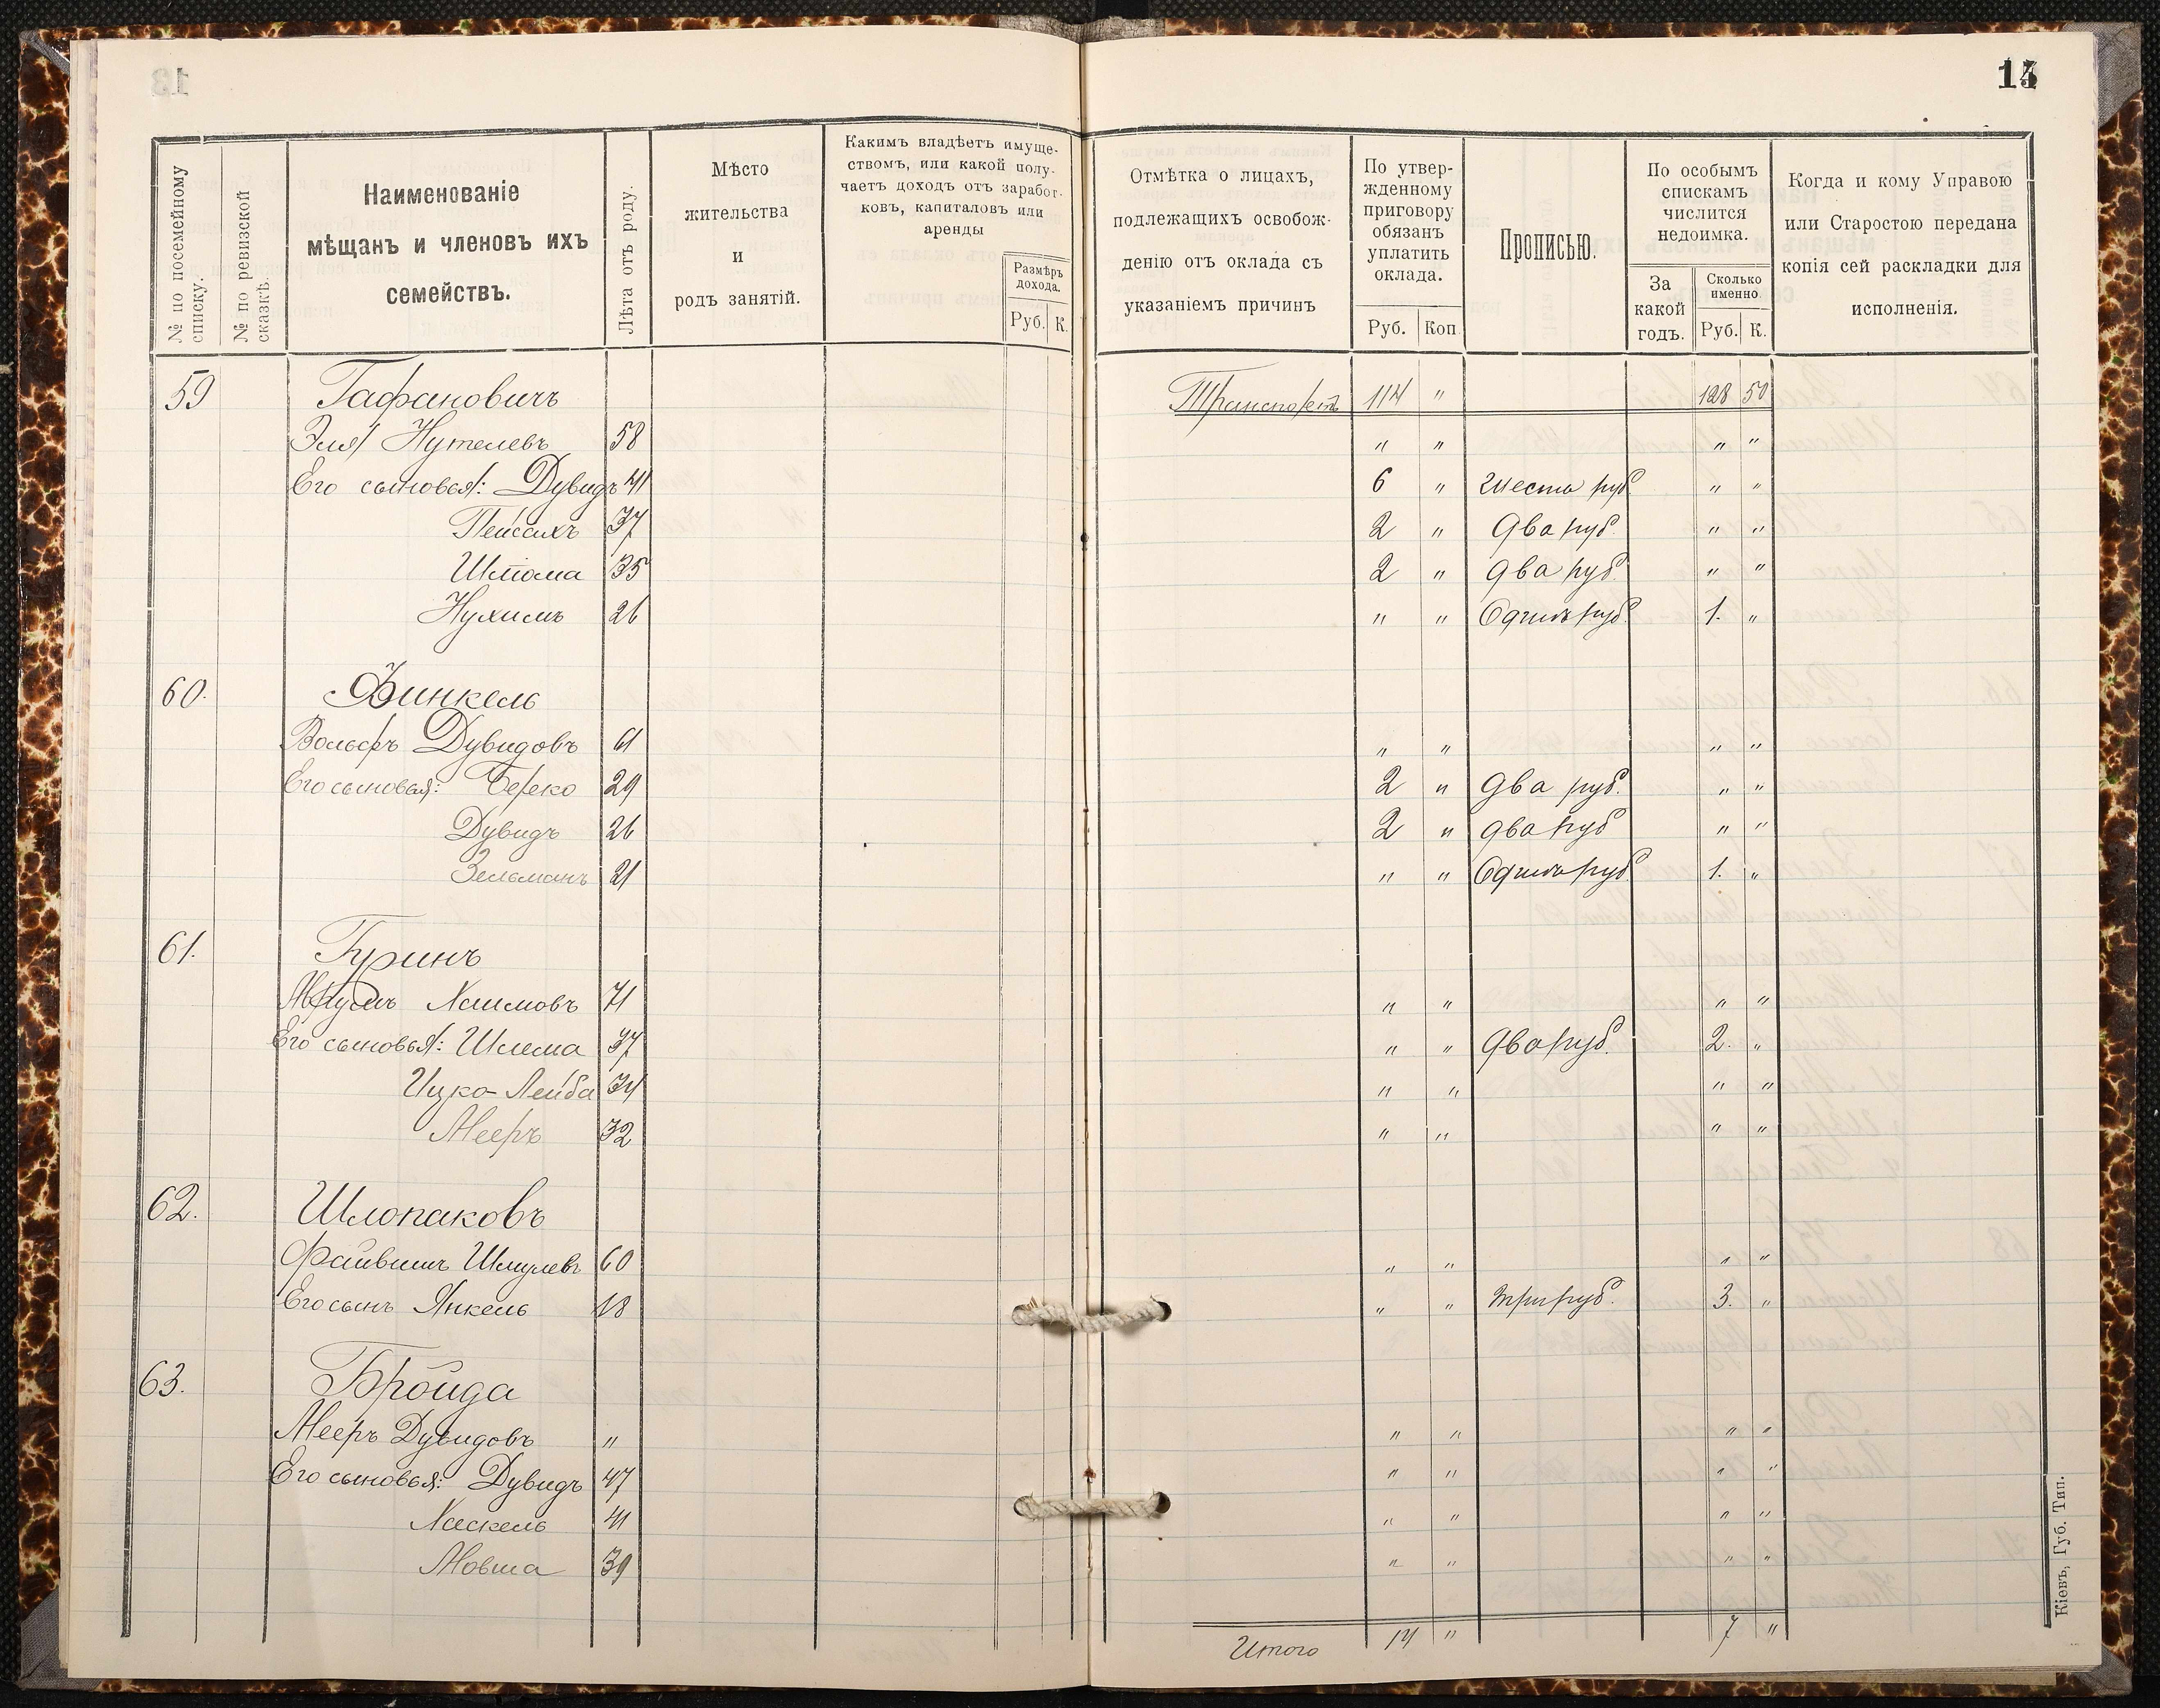 14
№ по посемейному списку.
№ по ревизской сказкѣ.
Наименованіе
мѣщанъ и членовъ ихъ
семействъ.
Лѣта отъ роду.
Мѣсто
жительства
и
родъ занятій.
Какимъ владѣетъ имуще-
ствомъ, или какой полу-
чаетъ доходъ отъ заработ-
ковъ, капиталовъ или
аренды
Размѣръ
дохода.
Руб. К.
Отмѣтка о лицахъ,
подлежащихъ освобож-
денію отъ оклада съ
указаніемъ причинъ
По утвер-
жденному
приговору
обязанъ
уплатить
оклада.
Руб. Коп
Прописью.
По особымъ
спискамъ
числится
недоимка.
За
какой
годъ.
Сколько
именно
Руб. К.
Когда и кому Управою
или Старостою передана
копія сей раскладки для
исполненія.
59 Гафановичъ Транспортъ 114 " 128 50
Эля Нутелевъ 58 " " " "
Его сыновья: Дувидъ 41 6 " Шесть руб. " "
Пейсахъ 37 2 " Два руб. " "
Шлома 35 2 " Два руб. " "
Нухимъ 26 " " Одинъ руб. 1. "
60. Финкель
Вольфъ Дувидовъ 61 " " " "
Его сыновья: Берко 29 2 " Два руб. " "
Дувидъ 26 2 " Два руб " "
Зельманъ 21 " " Одинъ руб. 1. "
61. Гринъ
Хаимовъ 71 " " " "
Его сыновья: Шлема 37 " " Два руб. 2. "
Ицко-Лейба 34 " " " "
Мееръ 32 " " " "
62. Шлопаковъ
Файвишъ Шмулевъ 60 " " " "
Его сынъ Янкель 18 " " Три руб. 3. "
63. Бройда
Мееръ Дувидовъ " " " " "
Его сыновья: Дувидъ 47 " " " "
Хаскель 41 " " " "
Мовша 39 " " " "
Итого 14 " 7 "
Кіевъ, Губ. Тип.